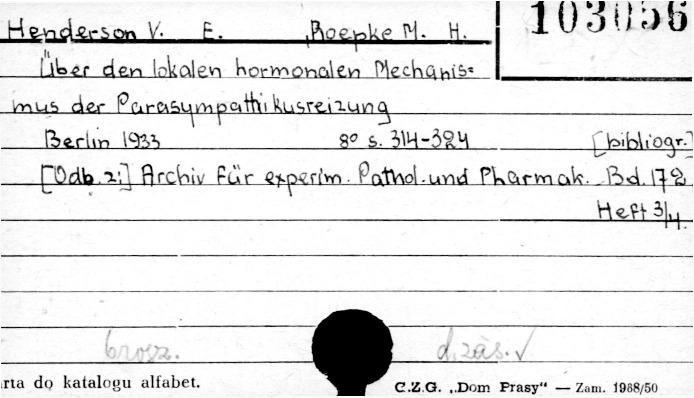 103056
Henderson V. E. , Roepke M. H.
Über den lokalen hormonalen Mechanis=
mus der Parasympathikusreizung
Berlin 1933 8° s. 314-324 [bibliogr.]
[Odb. z:] Archiv für experim. Pathol. und Pharmak. Bd. 172
Heft 3/4.
brosz. d. zás. √
rta do katalogu alfabet. C.Z.G. „Dom Prasy" — Zam. 1988/50